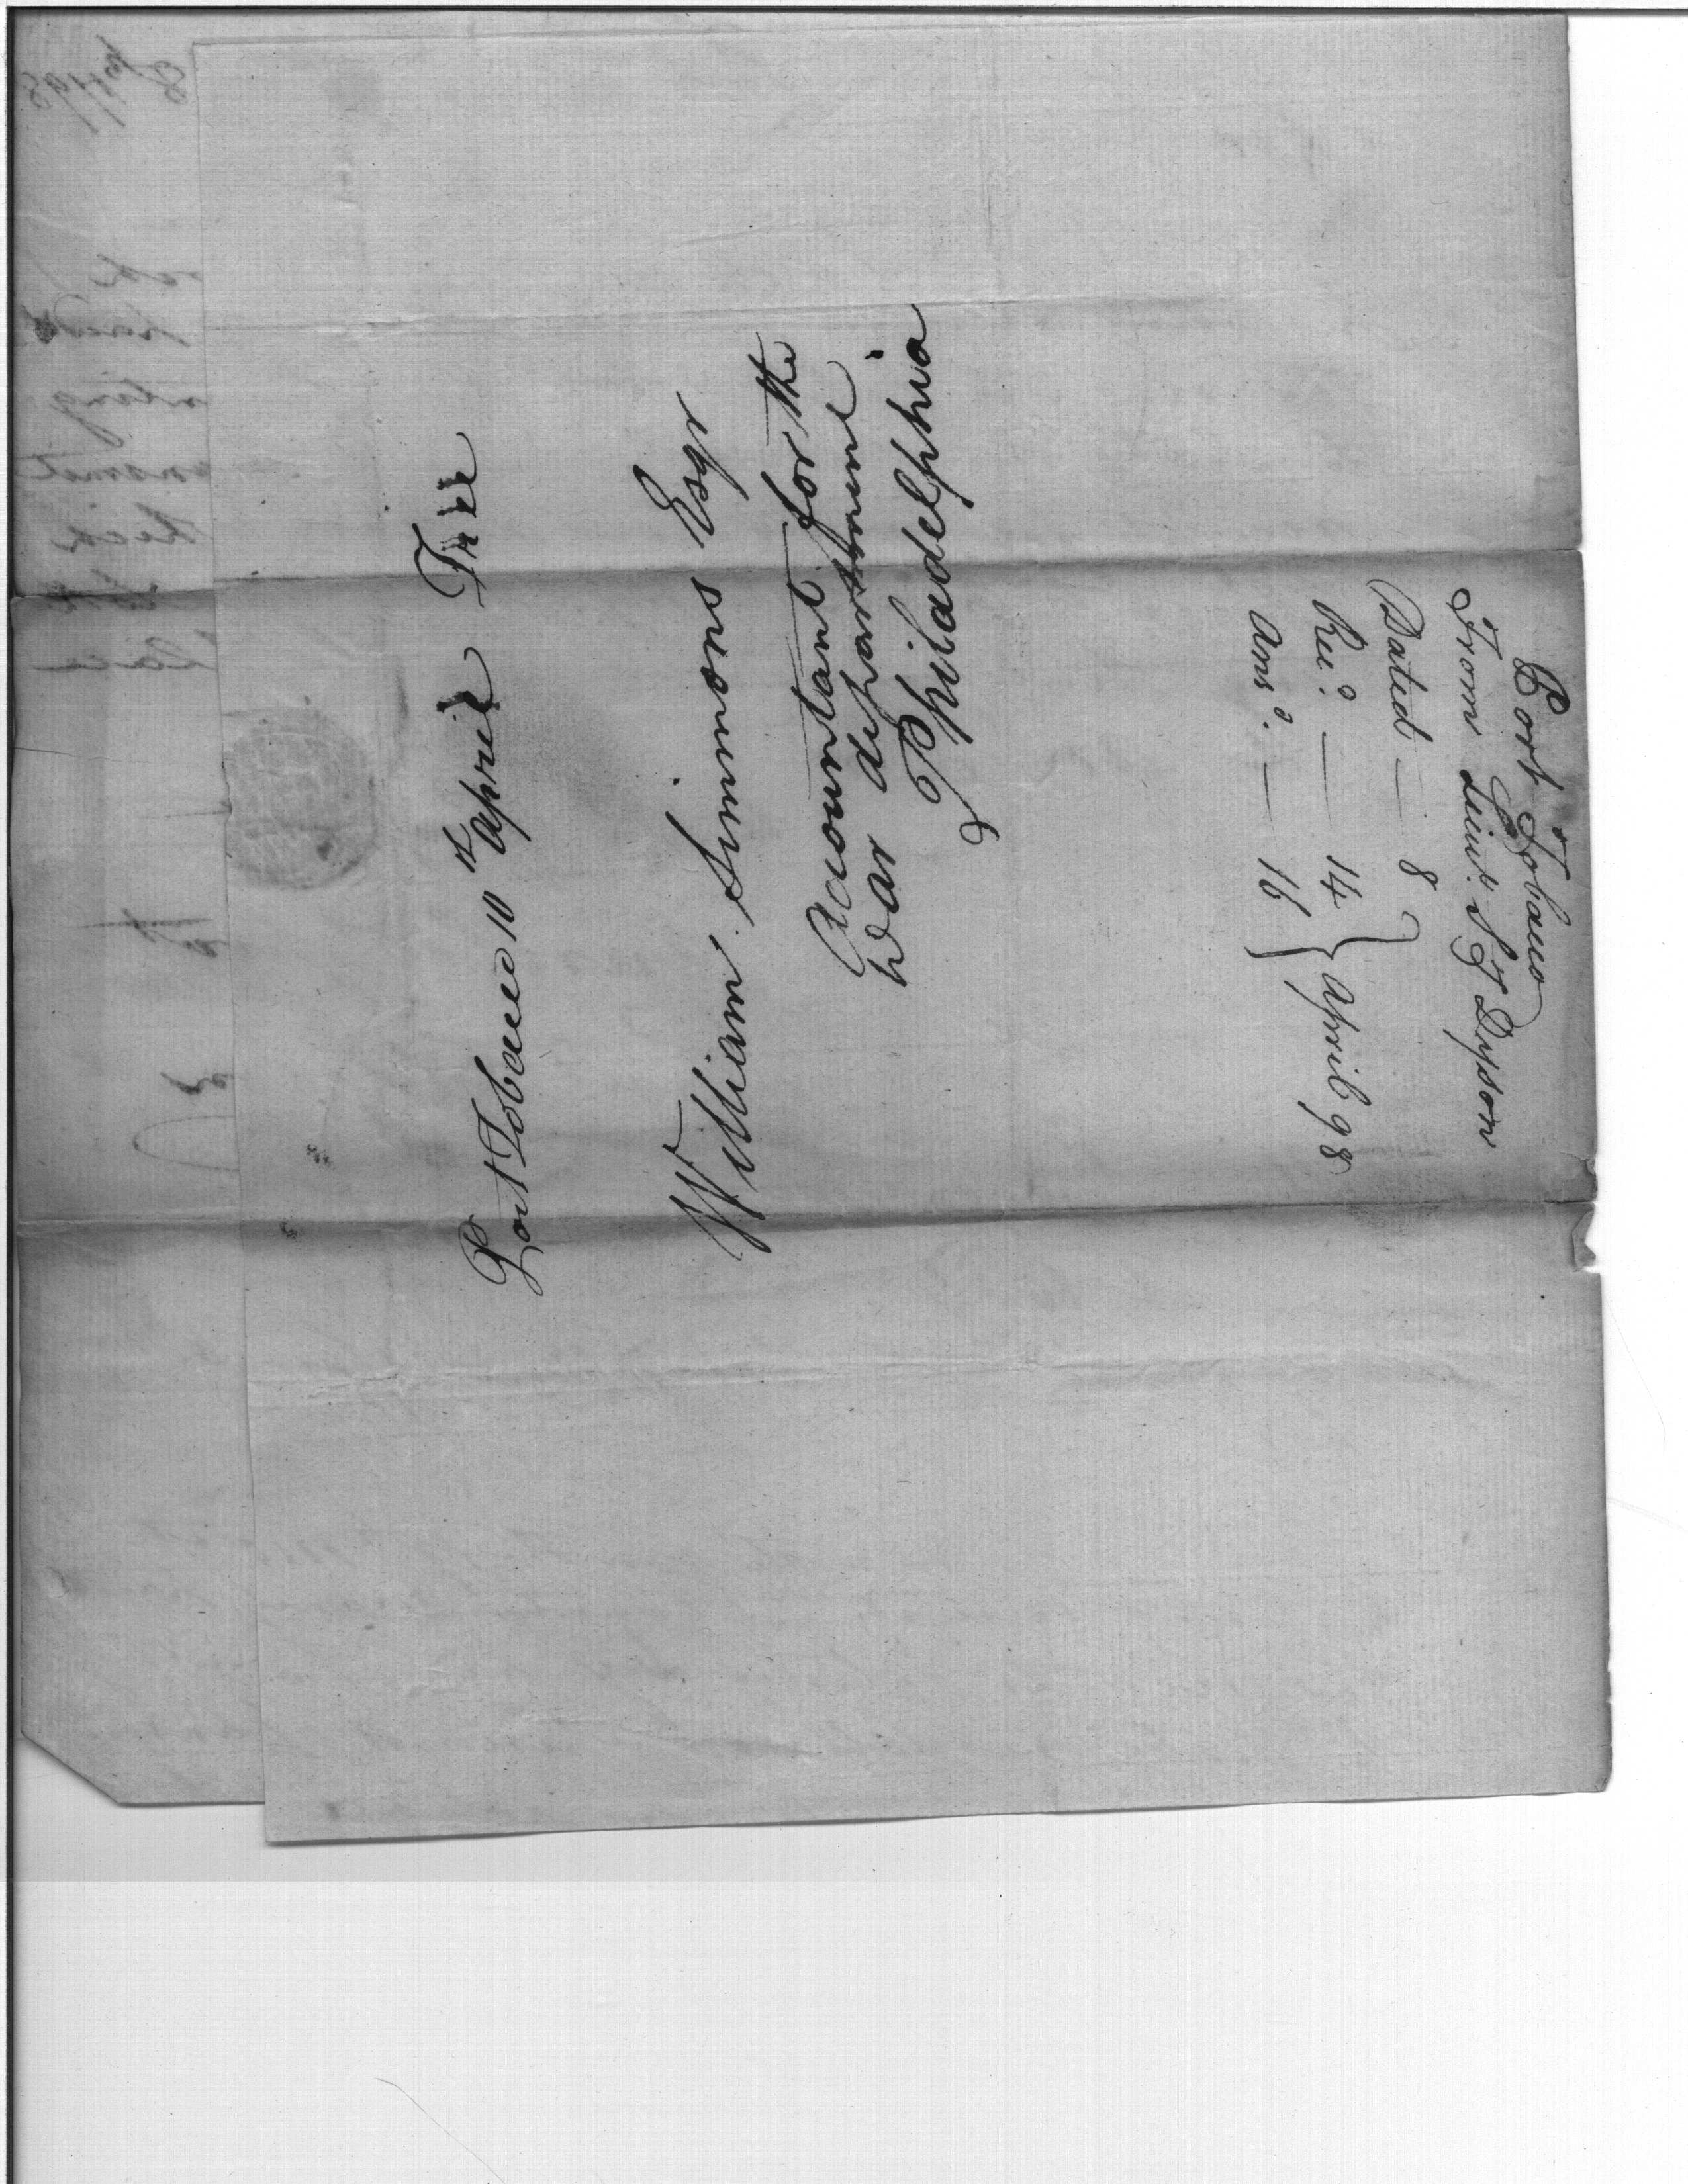 Port Tobacco 10th April Free
William Simmons Esqr
Accountant for the
War department
Philadelphia
Port Tobacco
From Lieut. S T Dyson
Dated — 8
Recd. — 14 } April 98
Ansd. — 16